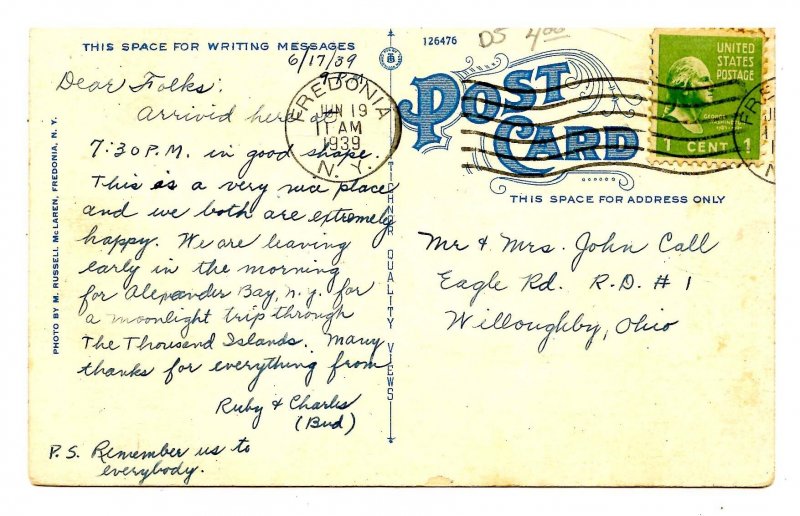 THIS SPACE FOR WRITING MESSAGES
6/17/39
9 P.M.
Dear Folks:
Arrivid here at
7:30 P.M. in good shape.
This is a very nice place
and we both are extremely
happy. We are leaving
early in the morning
for Alexander Bay, n.y. for
a moonlight trip through
The Thousand Islands. Many
thanks for everything from
Ruby & Charles
(Bud)
P.S. Remember us to
everybody.
PHOTO BY M. RUSSELL McLAREN, FREDONIA, N. Y.
TICHNOR QUALITY VIEWS
FREDONIA
JUN 19
11 AM
1939
N. Y.
126476
DS 4.00
POST CARD
THIS SPACE FOR ADDRESS ONLY
UNITED
STATES
POSTAGE
GEORGE
WASHINGTON
1 CENT 1
Mr & Mrs. John Call
Eagle Rd. R.D. # 1
Willoughby, Ohio